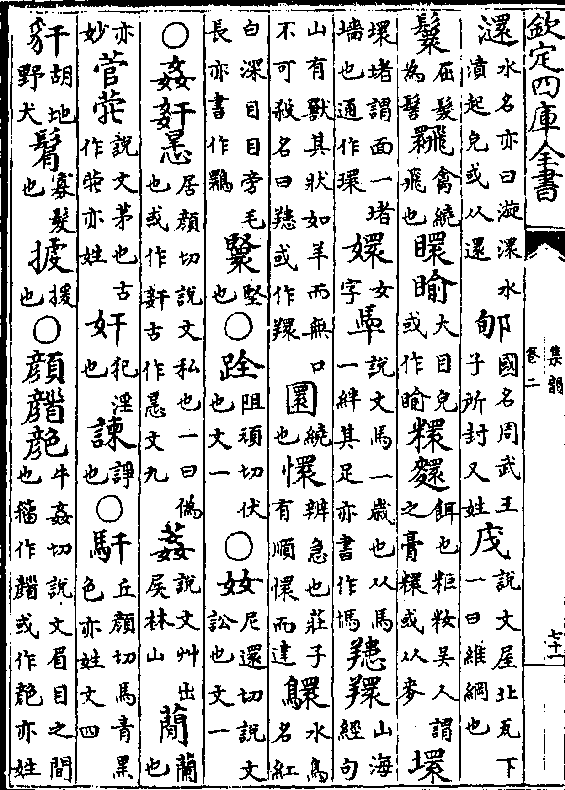 欽定四庫全書
集韻 卷二 七十一
澴 水名亦曰漩澴水濆起皃或从還 郇 國名周武王子所封又姓 說文屋北瓦下一曰維綱也
鬟 屈髮為髻 翾 禽繞飛也 睮 大目皃或作睮 糫 餌也粔籹吳人謂之膏糫或从麥
環堵謂面一堵墻也通作環 嬛 女字 說文馬一歲也从馬一絆其足亦書作 羦 山海經句
山有獸其狀如羊而無口不可殺名曰或作羦 圜 繞也 懁 辨急也莊子有順懁而達 水鳥名紅
白深目目旁毛長亦書作 堅也 ○跧 阻頑切伏也文一 ○奻 尼還切說文訟也文一
○姦姧悬 居顔切說文私也一曰偽也或作姧古作悬文九 葌 說文艸出吳林山 蕑 蘭也
亦妙 菅 說文茅也古作亦姓 奸 犯淫也 諫 諍也 ○馯 丘顔切馬青黑色亦姓文四
豻 胡地野犬也 寡髮也 援也 ○顔 牛姦切說文眉目之間也籀作或作亦姓